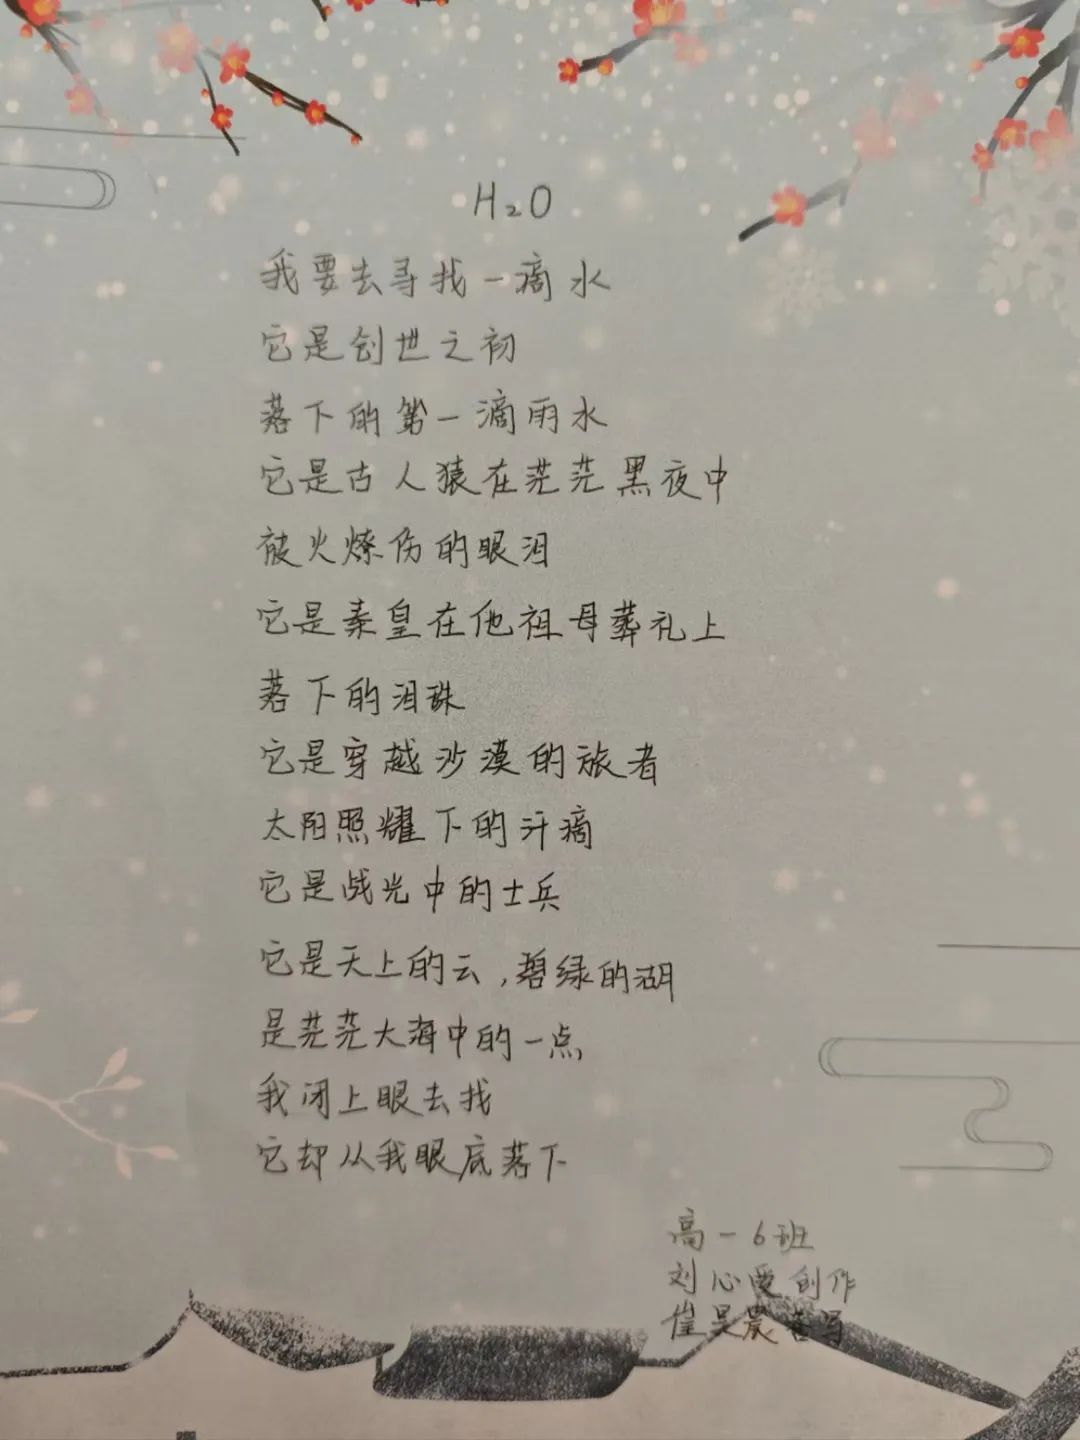 H₂O
我要去寻找一滴水
它是创世之初
落下的第一滴雨水
它是古人猿在茫茫黑夜中
被火燎伤的眼泪
它是秦皇在他祖母葬礼上
落下的泪珠
它是穿越沙漠的旅者
太阳照耀下的汗滴
它是战光中的士兵
它是天上的云，碧绿的湖
是茫茫大海中的一点
我闭上眼去找
它却从我眼底落下
高一6班
刘心爱创作
崔昊晨书写